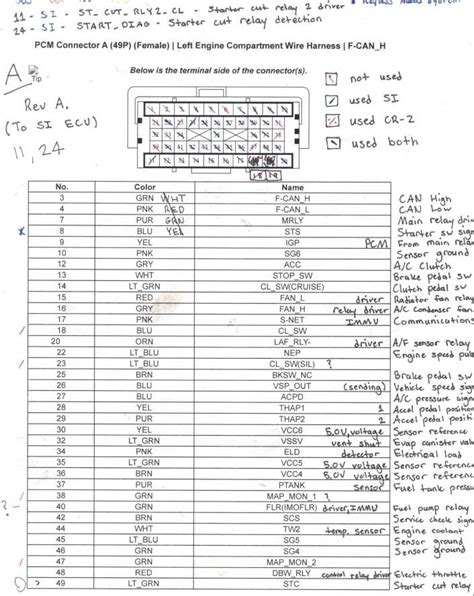 11 - SI - ST_CUT_RLY2_CL - Starter cut relay 2 driver
24 - SI - START_DIAG - Starter cut relay detection
PCM Connector A (49P) (Female) | Left Engine Compartment Wire Harness | F-CAN_H
A
Tip
Below is the terminal side of the connector(s).
Rev A.
(To SI ECU)
11, 24
not used
used SI
used CR-2
used both
No. Color Name
3 GRN WHT F-CAN_H CAN High
4 PNK RED F-CAN_L CAN Low
7 PUR GRN MRLY Main relay driv
8 BLU YEL STS Starter sw sign
9 YEL IGP PCM From main relay
10 PNK SG6 Sensor ground
12 GRY ACC A/C Clutch
13 WHT STOP_SW Brake pedal sw
14 LT_GRN CL_SW(CRUISE) Clutch pedal sw
15 RED FAN_L driver Radiator fan relay
16 GRY FAN_H relay driver A/C condenser fan
17 PNK S-NET IMMU Communications
18 BLU CL_SW
20 ORN LAF_RLY- driver A/F sensor relay
22 LT_BLU NEP Engine speed puls
23 LT_BLU CL_SW(SIL) ?
25 BRN BKSW_NC Brake pedal sw
26 BLU VSP_OUT (sending) Vehicle speed sign
27 BLU ACPD A/C pressure sign
28 YEL THAP1 1 Accel pedal position
29 PUR THAP2 2 Accel pedal positi
30 YEL VCC6 5.0V, voltage Sensor reference
32 LT_GRN VSSV vent shut Evap canister valv
34 PNK ELD detector Electrical load
35 LT_GRN VCC5 5.0V voltage Sensor reference
36 BRN VCC4 5.0V voltage Sensor reference
37 PUR PTANK sensor Fuel tank pressu
38 GRN MAP_MON_1 ?
?- 40 GRN FLR(IMOFLR) driver, IMMU Fuel pump relay
42 BRN SCS Service check sign
44 WHT TW2 temp. sensor Engine coolant
45 YEL SG5 Sensor ground
46 GRN SG4 Sensor ground
47 GRN MAP_MON_2
48 RED DBW_RLY control relay driver Electric throttle
49 LT_GRN STC Starter cut relay